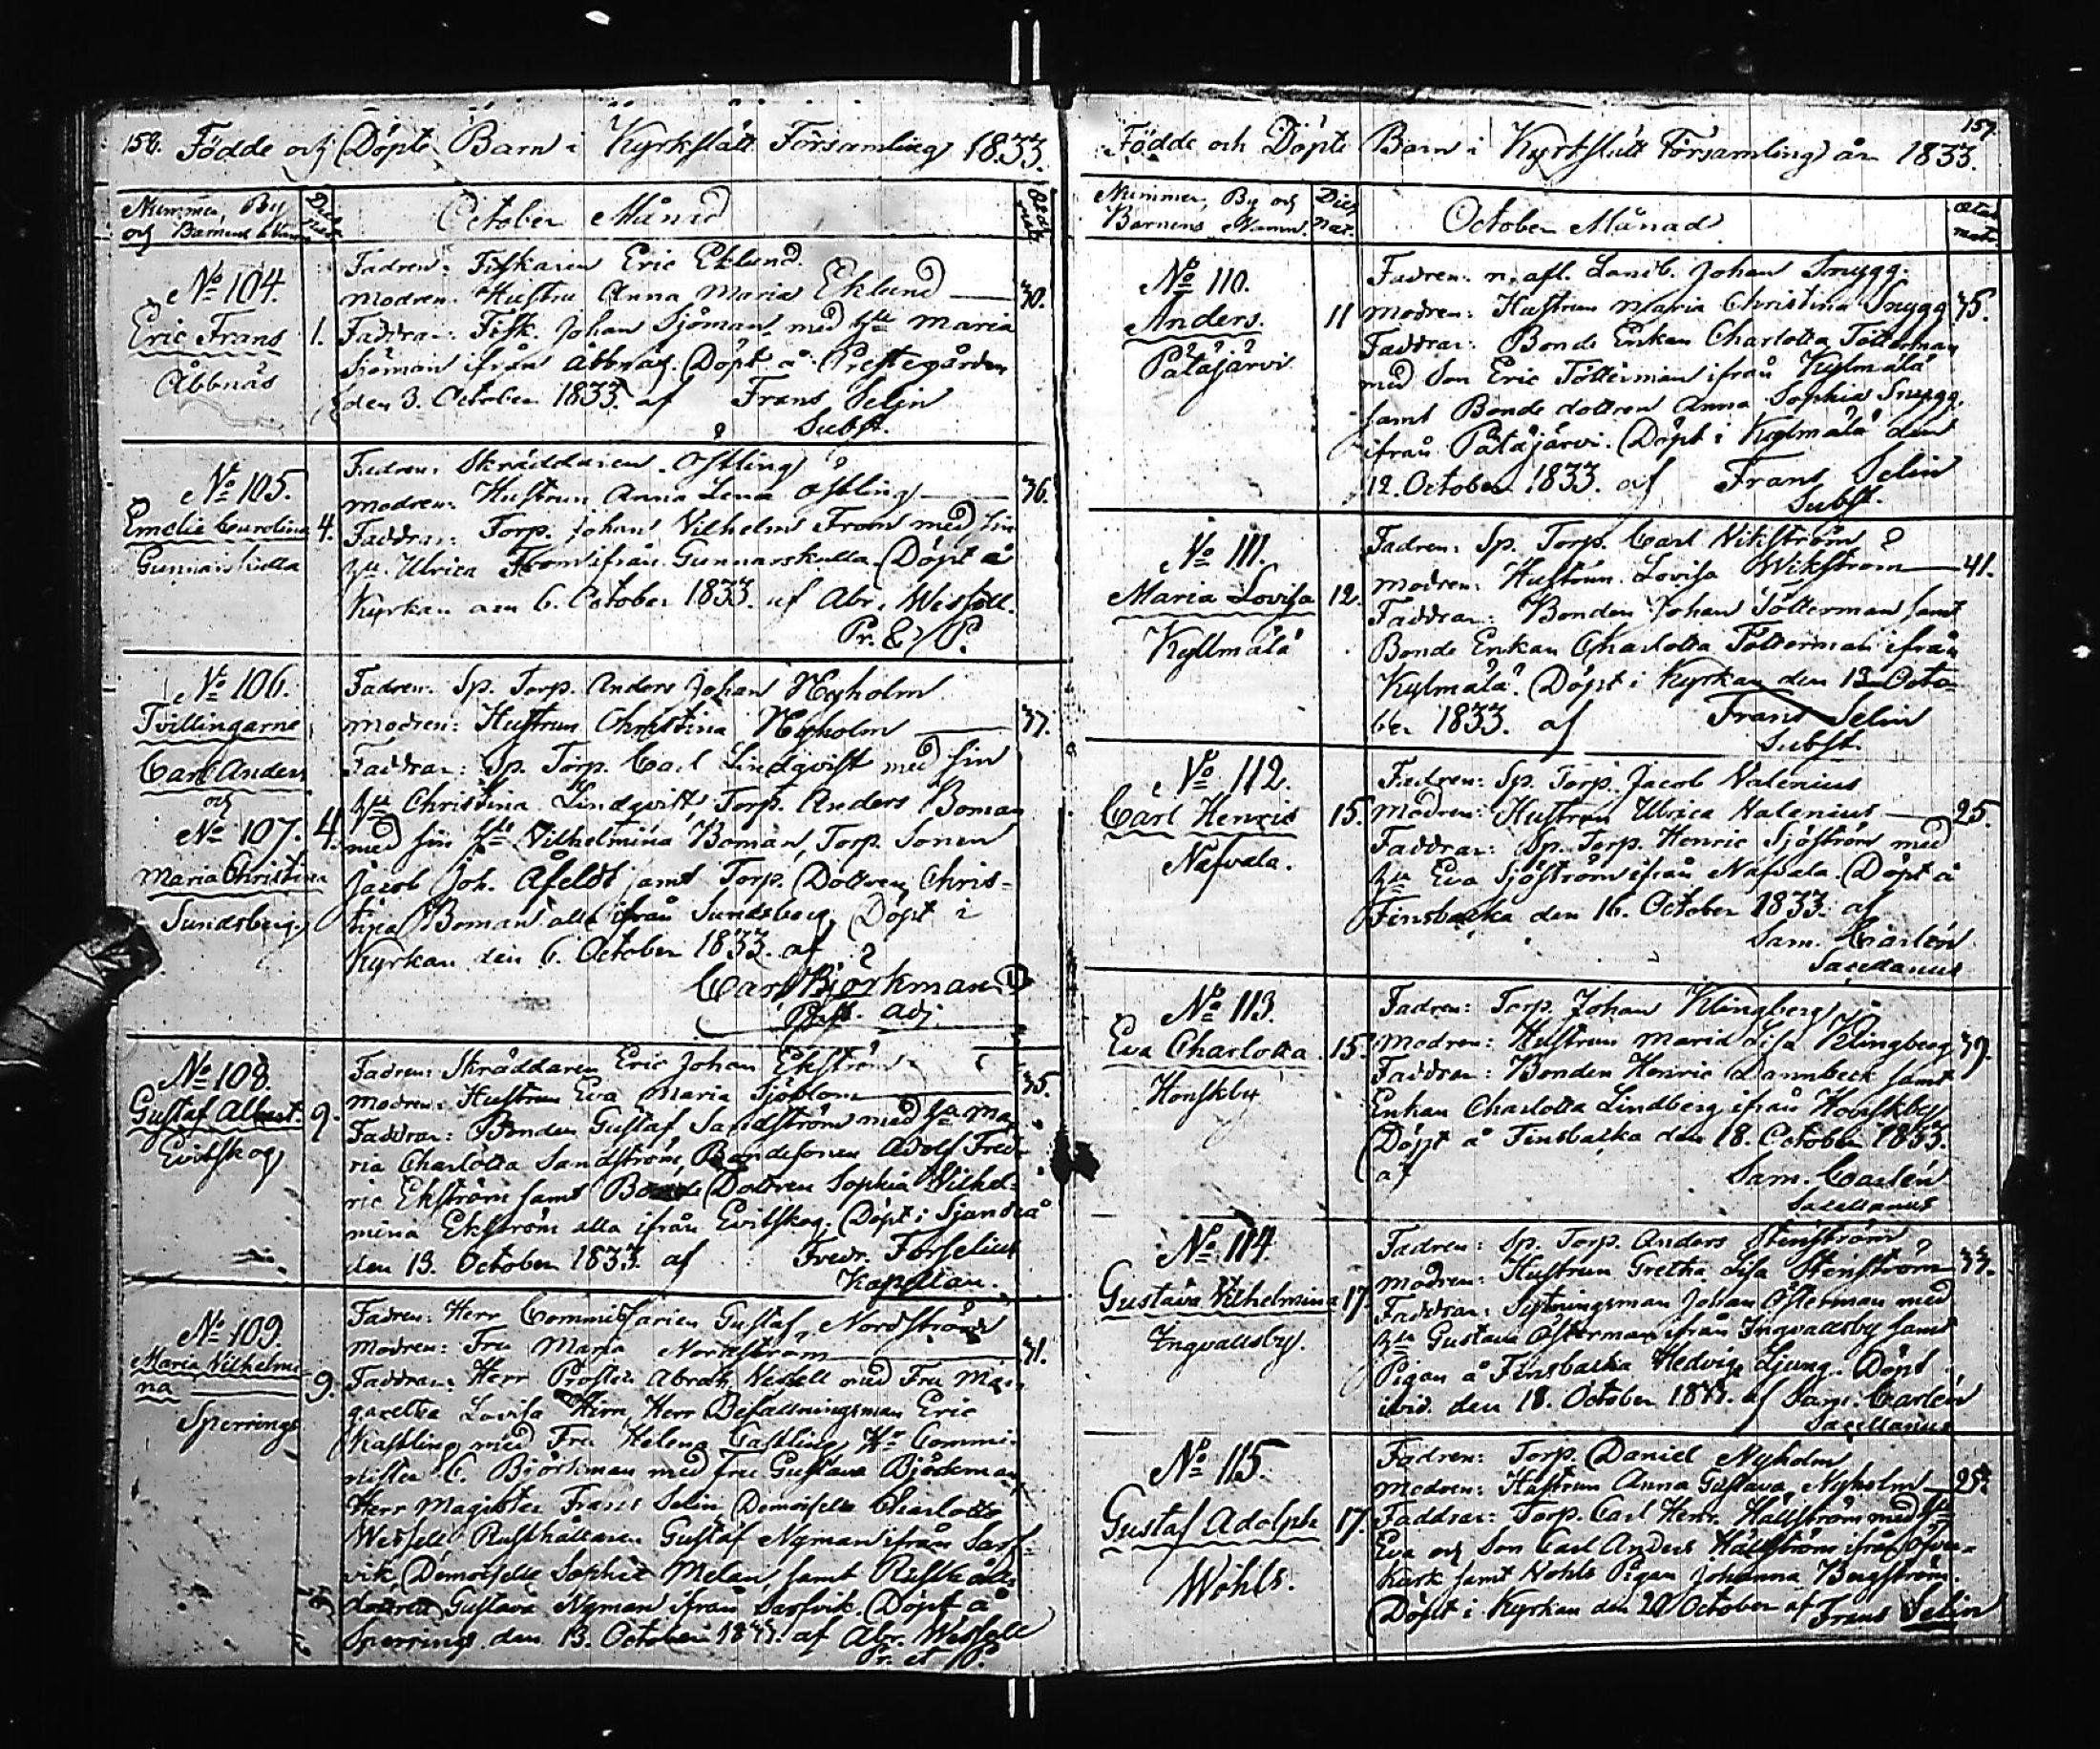 156. Födde och Döpte Barn i Kyrkslätt Församling 1833.
Nummer, By
och Barnens Namn
Dies
nat.
October Månad
Ætas
matr.
No 104.
Eric Frans
Åbbnäs
1.
Fadren: Fiskaren Eric Eklund.
Modren: Hustru Anna Maria Eklund — 30.
Faddrar: Fisk. Johan Sjöman med hu Maria
Sjöman ifrån Åbbnäs. Döpt å Prestegården
den 3. October 1833. af Frans Selin
Subst.
No 105.
Emelie Carolina
Gunnarskulla
4.
Fadren: Skräddaren Östling
Modren: Hustrun Anna Lena Östling — 36.
Faddrar: Torp. Johan Vilhelm From med sin
hu Ulrica From ifrån Gunnarskulla. Döpt å
Kyrkan den 6. October 1833. af Abr. Wessell.
Pr. & P.
No 106.
Tvillingarne
Carl Anders
och
No 107.
Maria Christina
Sundsberg
4.
Fadren: Sp. Torp. Anders Johan Nyholm
Modren: Hustrun Christina Nyholm — 37.
Faddrar: Sp. Torp. Carl Lindqvist med sin
hu Christina Lindqvist, Torp. Anders Boman
med sin hu Vilhelmina Boman, Torp. Sonen
Jacob Joh. Åfeldt samt Torp. Dottren Chris-
tina Boman alla ifrån Sundsberg. Döpt i
Kyrkan den 6. October 1833. af
Carl Björkman
Adj.
No 108.
Gustaf Albert.
Evitskog
9.
Fadren: Skräddaren Eric Johan Ekström
Modren: Hustrun Eva Maria Sjöblom — 35.
Faddrar: Bonden Gustaf Sandström med hu Ma
ria Charlotta Sandström, Bondesonen Adolf Fred-
ric Ekström samt Bonde Dottren Sophia Vilhel-
mina Ekström alla ifrån Evitskog. Döpt i Sjundeå
den 13. October 1833. af Fredr. Forselius
Kapellan.
No 109.
Maria Vilhelmi
na
Sperrings
9.
Fadren: Herr Commissarien Gustaf Nordström
Modren: Fru Maria Nordström — 31.
Faddrar: Herr Prosten Abrah. Wessell med Fru Mar-
garetha Lovisa Hirn, Herr Befallningsman Eric
Kastling med Fru Helena Castling, Hr Commi-
nister C. Björkman med Fru Gustava Björkman
Herr Magister Frans Selin, Demoiselle Charlotta
Wessell, Rusthållaren Gustaf Nyman ifrån Sarf-
vik, Demoiselle Sophie Melan, samt Rusthåll.
dottren Gustava Nyman ifrån Sarfvik. Döpt å
Sperrings den 13. October 1833. af Abr. Wessell
Pr. et P.
157.
Födde och Döpte Barn i Kyrkslätt Församling år 1833.
Nummer, By och
Barnens Namn.
Dies
nat.
October Månad
Ætas
matr.
No 110.
Anders.
Pätäjärvi
11
Fadren: n. afl. Landb. Johan Snygg.
Modren: Hustrun Maria Christina Snygg 35.
Faddrar: Bonde Enkan Charlotta Tötterman
med Son Eric Tötterman ifrån Kylmälä
samt Bonde dottren Anna Sophia Snygg
ifrån Pätäjärvi. Döpt i Kylmälä den
12. October 1833. af Frans Selin
Subst.
No 111.
Maria Lovisa
Kyllmälä
12.
Fadren: Sp. Torp. Carl Vikström
Modren: Hustrun Lovisa Wikström — 41.
Faddrar: Bonden Johan Tötterman samt
Bonde Enkan Charlotta Tötterman ifrån
Kylmälä. Döpt i Kyrkan den 13 Octo-
ber 1833. af Frans Selin
Subst.
No 112.
Carl Henric
Nafvala.
15.
Fadren: Sp. Torp. Jacob Valenius
Modren: Hustrun Ulrica Valenius — 25.
Faddrar: Sp. Torp. Henric Sjöström med
hu Eva Sjöström ifrån Nafvala. Döpt å
Finsbacka den 16. October 1833. af
Sam. Carlén
Sacellanus
No 113.
Eva Charlotta
Honskby
15.
Fadren: Torp. Johan Klingberg
Modren: Hustrun Maria Lisa Klingberg 39.
Faddrar: Bonden Henric Dannbeck samt
Enkan Charlotta Lindberg ifrån Honskby
Döpt å Finsbacka den 18. October 1833.
af Sam. Carlén
Sacellanus
No 114.
Gustava Vilhelmina
Ingvallsby.
17.
Fadren: Sp. Torp. Anders Stenström
Modren: Hustrun Gretha Lisa Stenström 33.
Faddrar: Sytningsman Johan Österman med
hu Gustava Österman ifrån Ingvallsby samt
Pigan å Finsbacka Hedvig Ljung. Döpt
ibid. den 18. October 1833. af Sam. Carlén
Sacellanus
No 115.
Gustaf Adolph
Wohls.
17.
Fadren: Torp. Daniel Nyholm
Modren: Hustrun Anna Gustava Nyholm — 25.
Faddrar: Torp. Carl Henr. Hällström med hu
Eva och Son Carl Anders Hällström ifrån Öfver-
kurk samt Wohls Pigan Johanna Bergström.
Döpt i Kyrkan den 20 October af Frans Selin